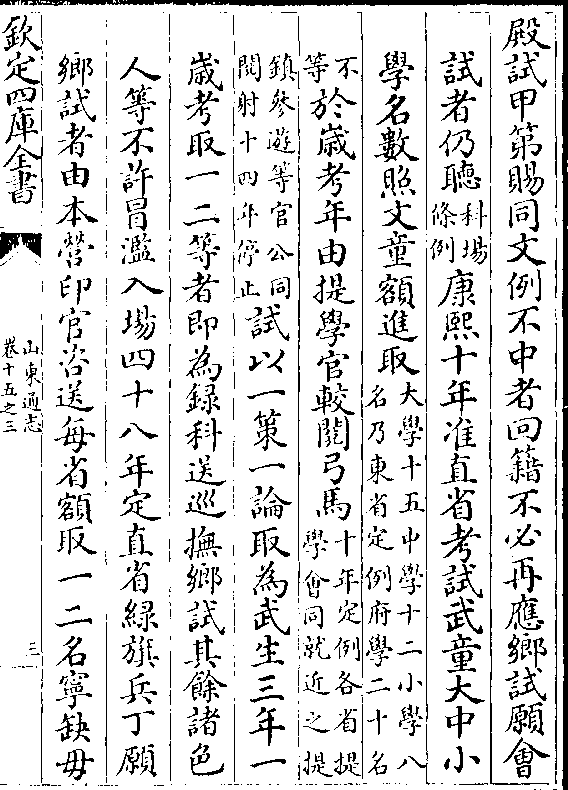 殿試甲第賜同文例不中者回籍不必再應鄉試願會
試者仍聽科場條例康熙十年准直省考試武童大中小
學名數照文童額進取大學十五中學十二小學八名乃東省定例府學二十名
不等於歲考年由提學官較閱弓馬十年定例各省提學會同就近之提
鎮叅遊等官公同閱射十四年停止試以一策一論取為武生三年一
歲考取一二等者即為録科送巡撫鄉試其餘諸色
人等不許冒濫入場四十八年定直省緑旗兵丁願
鄉試者由本營印官咨送每省額取一二名寧缺毋
欽定四庫全書
山東通志
卷十五之三
三